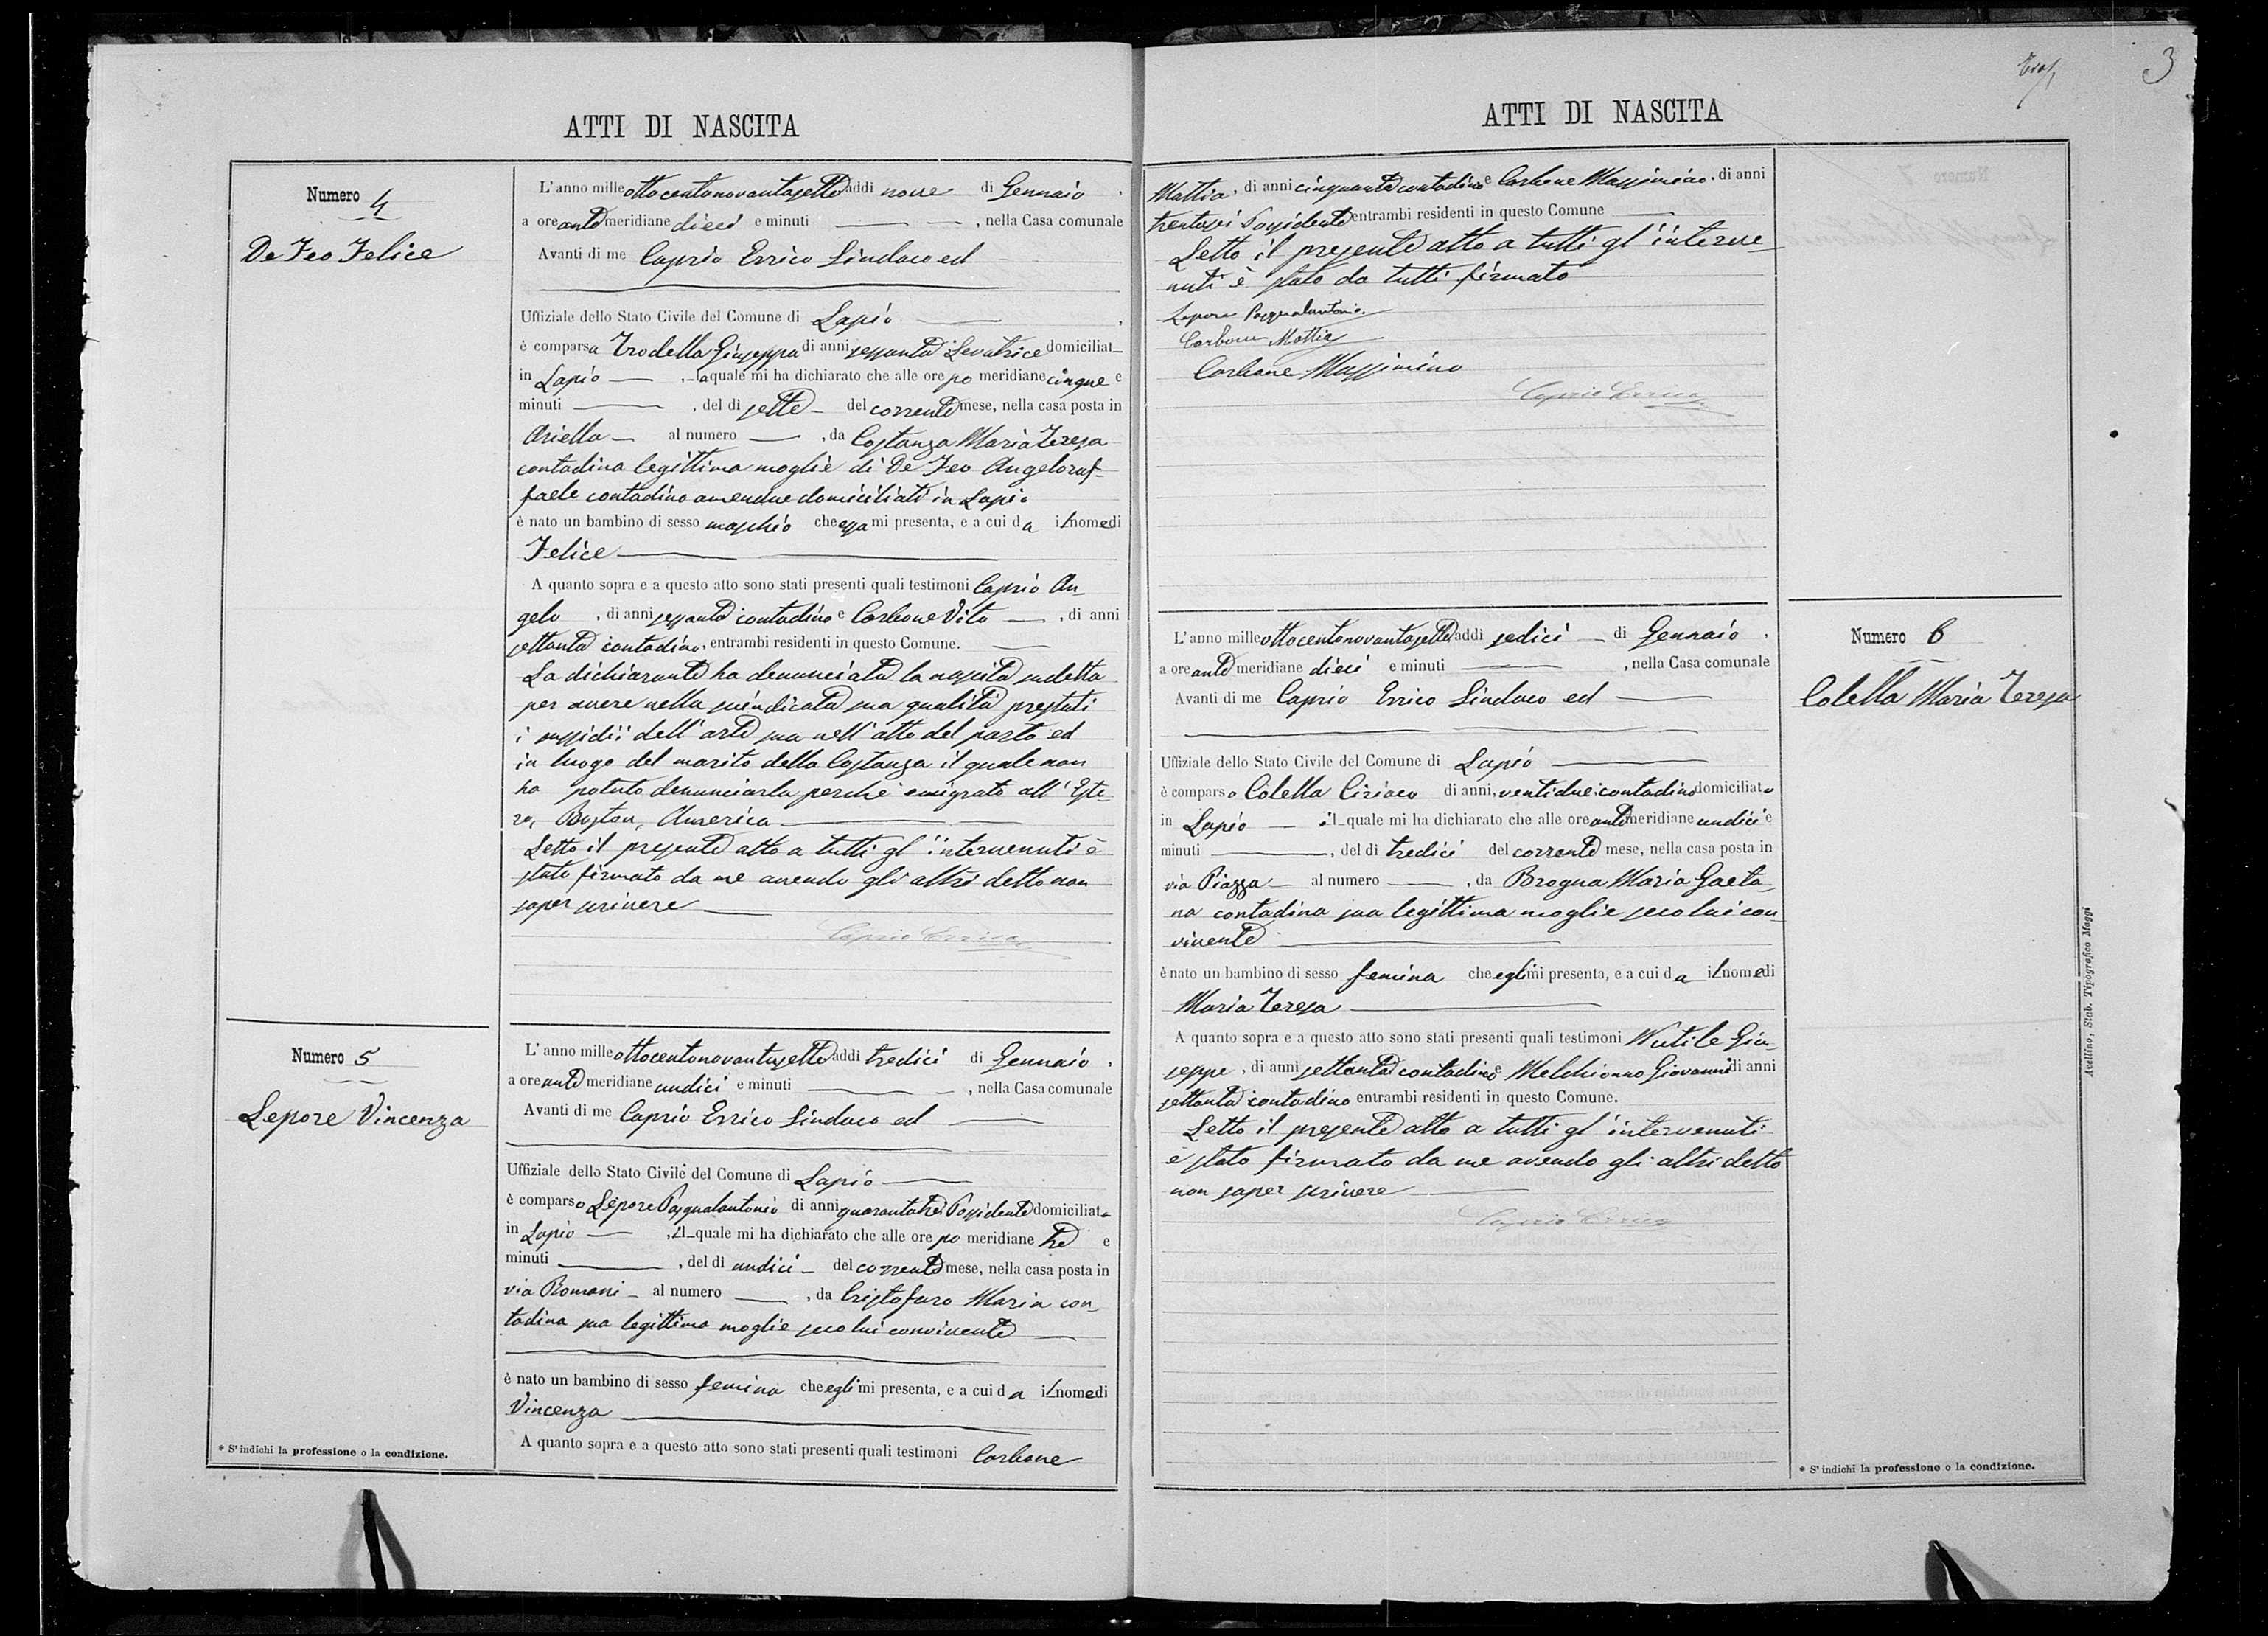 ATTI DI NASCITA
Numero 4
De Feo Felice
L'anno mille ottocentonovantasette addì nove di Gennaio,
a ore ante meridiane dieci e minuti , nella Casa comunale
Avanti di me Caprio Errico Sindaco ed
Uffiziale dello Stato Civile del Comune di Lapio ,
è comparsa Trodella Giuseppa di anni sessanta Levatrice domiciliat
in Lapio , la quale mi ha dichiarato che alle ore po meridiane cinque e
minuti , del dì sette del corrente mese, nella casa posta in
Ariella al numero , da Costanza Maria Teresa
contadina legittima moglie di De Feo Angeloraf-
faele contadino amendue domiciliati in Lapio
è nato un bambino di sesso maschio che essa mi presenta, e a cui da il nome di
Felice
A quanto sopra e a questo atto sono stati presenti quali testimoni Caprio An
gelo , di anni sessanta contadino e Carbone Vito , di anni
settanta contadino, entrambi residenti in questo Comune.
La dichiarante ha denunciata la nascita sudetta
per avere nella suindicata sua qualità prestati
i sussidii dell'arte sua nell'atto del parto ed
in luogo del marito della Costanza il quale non
ha potuto denunciarla perché emigrato all'Este-
ro, Boston, America
Letto il presente atto a tutti gl'intervenuti è
stato firmato da me avendo gli altri detto non
saper scrivere
Caprio Errico
Numero 5
Lepore Vincenza
L'anno mille ottocentonovantasette addì tredici di Gennaio,
a ore ante meridiane undici e minuti , nella Casa comunale
Avanti di me Caprio Errico Sindaco ed
Uffiziale dello Stato Civile del Comune di Lapio
è comparso Lepore Pasqualantonio di anni quarantatre Possidente domiciliato
in Lapio , il quale mi ha dichiarato che alle ore po meridiane tre e
minuti , del dì undici del corrente mese, nella casa posta in
via Romani al numero , da Cristofaro Maria con
tadina sua legittima moglie seco lui convivente
è nato un bambino di sesso femina che egli mi presenta, e a cui da il nome di
Vincenza
A quanto sopra e a questo atto sono stati presenti quali testimoni Carbone
* S'indichi la professione o la condizione.
3
ATTI DI NASCITA
Mattia, di anni cinquanta contadino e Carbone Massimino, di anni
trentasei Possidente entrambi residenti in questo Comune
Letto il presente atto a tutti gl'interve
nuti è stato da tutti firmato
Lepore Pasqualantonio
Carbone Mattia
Carbone Massimino
Caprio Errico
Numero 6
Colella Maria Teresa
L'anno mille ottocentonovantasette addì sedici di Gennaio,
a ore ante meridiane dieci e minuti , nella Casa comunale
Avanti di me Caprio Errico Sindaco ed
Uffiziale dello Stato Civile del Comune di Lapio
è comparso Colella Ciriaco di anni, ventidue contadino domiciliato
in Lapio il quale mi ha dichiarato che alle ore ante meridiane undici e
minuti , del dì tredici del corrente mese, nella casa posta in
via Piazza al numero , da Brogna Maria Gaeta
na contadina sua legittima moglie seco lui con
vivente
è nato un bambino di sesso femina che egli mi presenta, e a cui da il nome di
Maria Teresa
A quanto sopra e a questo atto sono stati presenti quali testimoni Nutile Giu-
seppe, di anni settanta contadino e Melchionno Giovanni di anni
settanta contadino entrambi residenti in questo Comune.
Letto il presente atto a tutti gl'intervenuti
è stato firmato da me avendo gli altri detto
non saper scrivere
Caprio Errico
* S'indichi la professione o la condizione.
Avellino, Stab. Tipografico Maggi